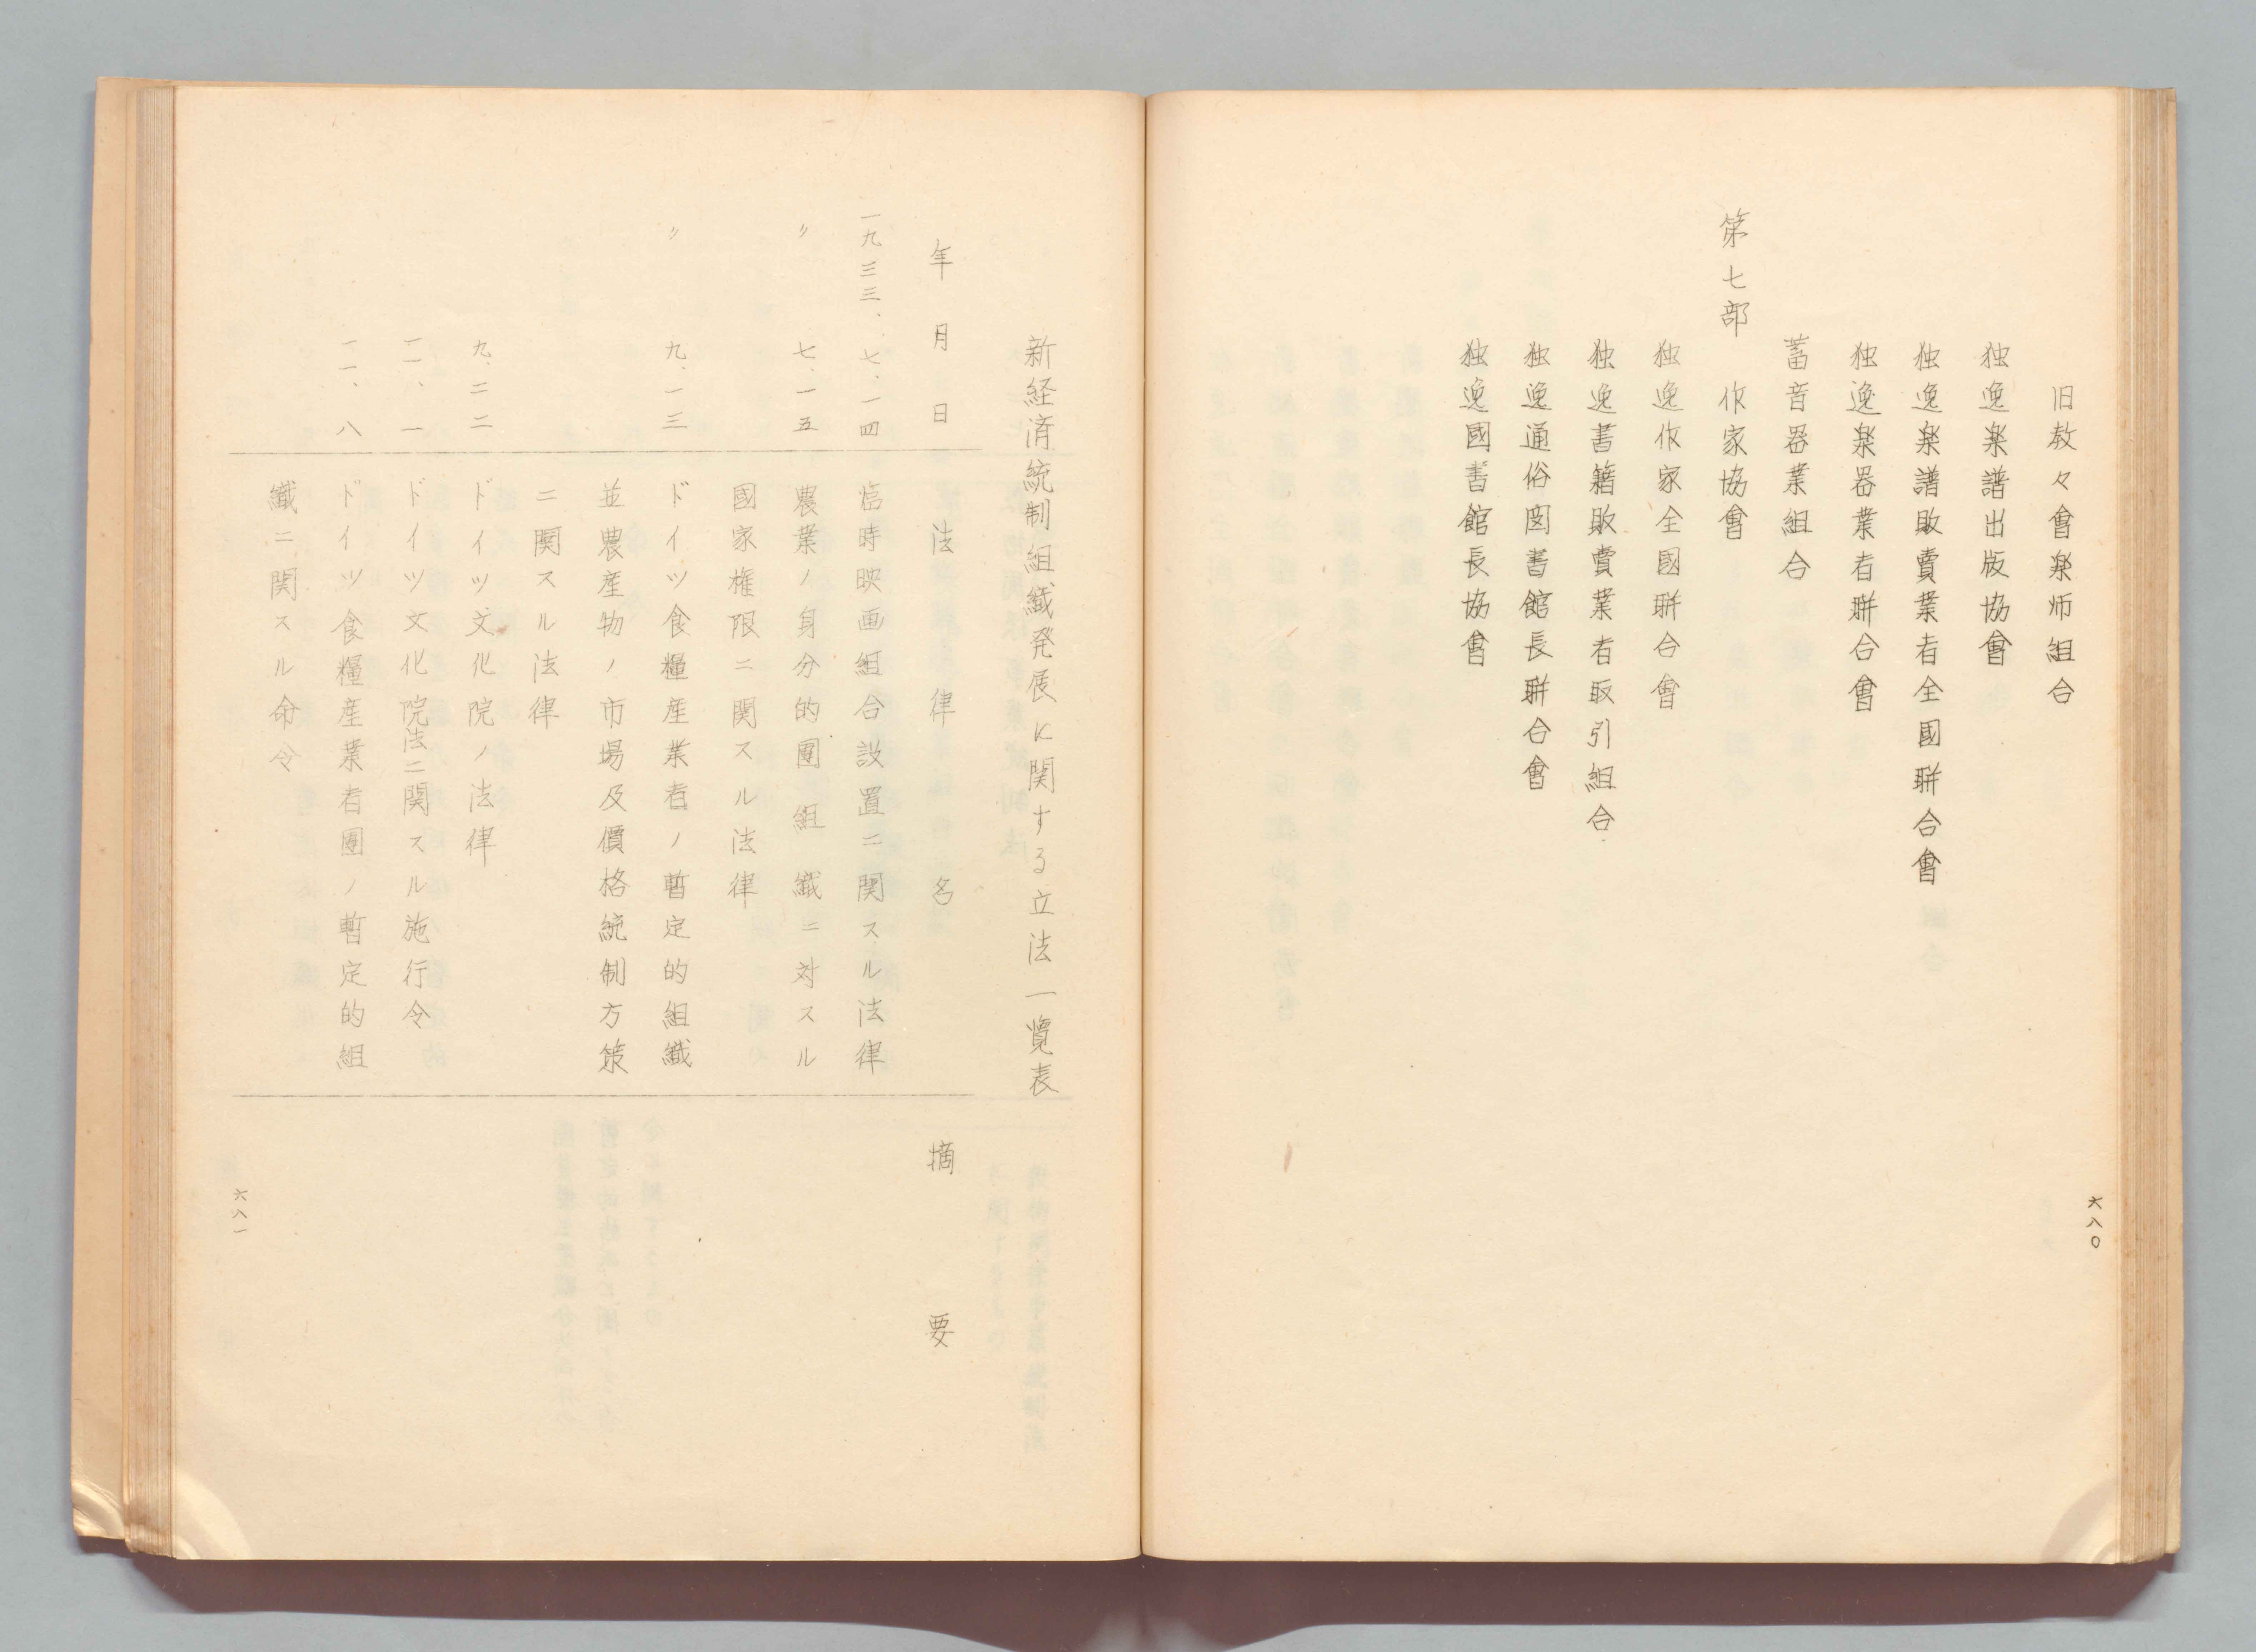 旧教々會楽师組合
独逸楽譜出版協會
独逸楽譜販賣業者全國聨合會
独逸楽器業者聨合會
蓄音器業組合
第七部　作家協會
独逸作家全國聨合會
独逸書籍販賣業者取引組合
独逸通俗図書館長聨合會
独逸國書館長協會
六八〇
新経済統制組織発展に関する立法一覧表
年月日　法律名　摘要
一九三三、七、一四　臨時映画組合設置ニ関スル法律
〃　七、一五　農業ノ身分的團組織ニ対スル
國家権限ニ関スル法律
〃　九、一三　ドイツ食糧産業者ノ暫定的組織
並農産物ノ市場及價格統制方策
ニ関スル法律
九、二二　ドイツ文化院ノ法律
一一、一　ドイツ文化院法ニ関スル施行令
一一、八　ドイツ食糧産業者團ノ暫定的組
織ニ関スル命令
六八一